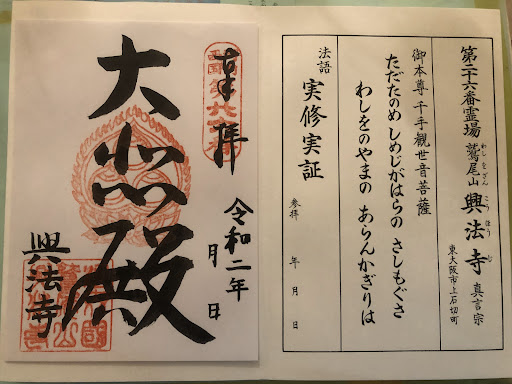 第二十六番霊場 鷲尾山 興法寺 真言宗
わしをざん こうほうじ
東大阪市上石切町
御本尊 千手観世音菩薩
ただたのめ しめじがはらの さしもぐさ
わしをのやまの あらんかぎりは
法語 実修実証
参拝 年 月 日
奉拝
令和二年 月 日
大悲殿
興法寺